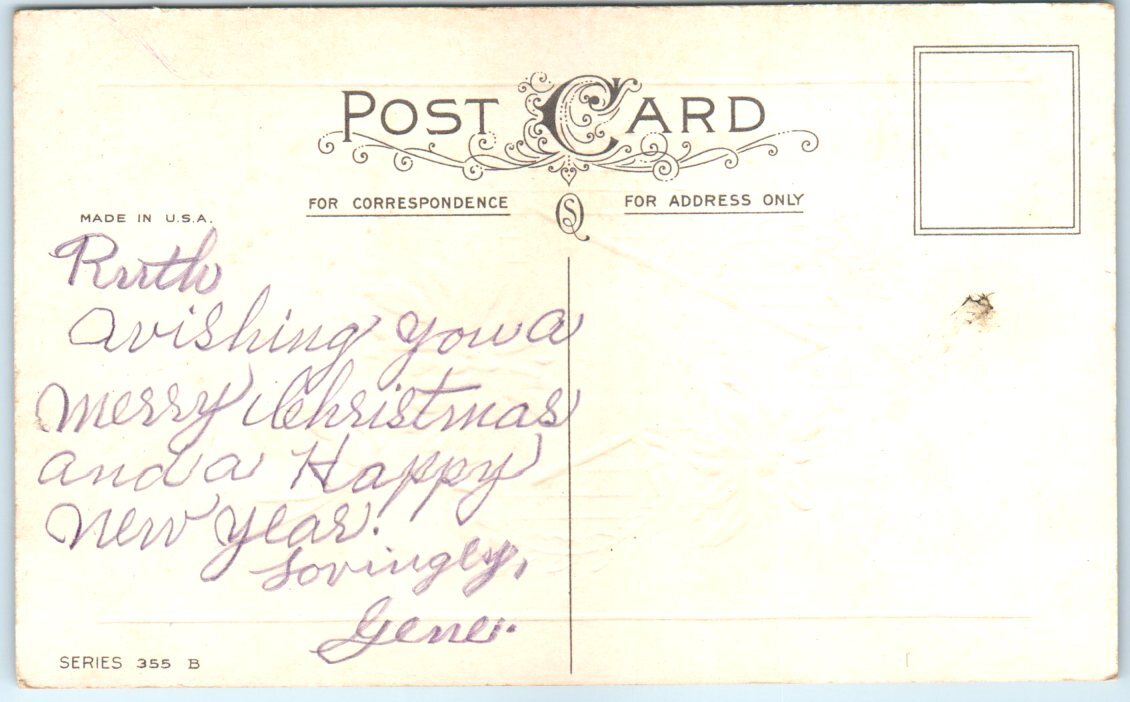 POST CARD
FOR CORRESPONDENCE
FOR ADDRESS ONLY
MADE IN U.S.A.
Ruth
Wishing you a
Merry Christmas
and a Happy
New Year.
Lovingly,
Gene.
SERIES 355 B